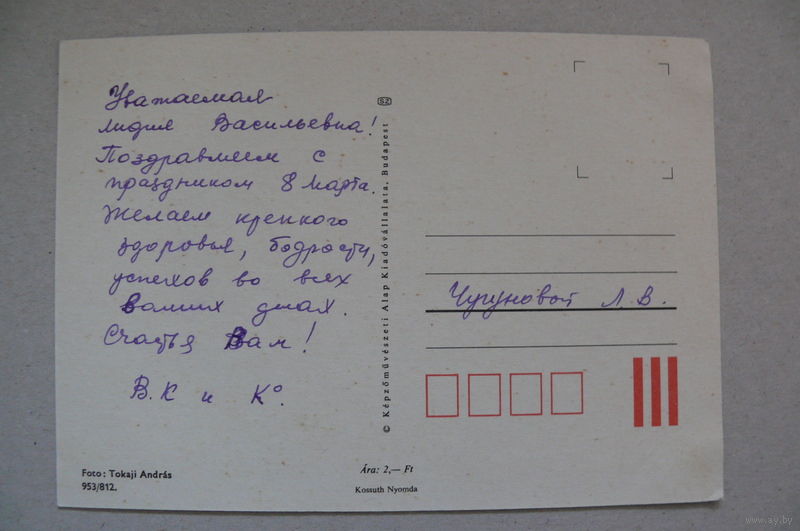 Уважаемая
Лидия Васильевна!
Поздравляем с
праздником 8 Марта.
Желаем крепкого
здоровья, бодрости,
успехов во всех
Ваших делах.
Счастья Вам!
В.К и К°.
Foto: Tokaji András
953/812.
SZ
© Képzőművészeti Alap Kiadóvállalata, Budapest
Ára: 2,— Ft
Kossuth Nyomda
Чугуновой Л.В.
www.ay.by